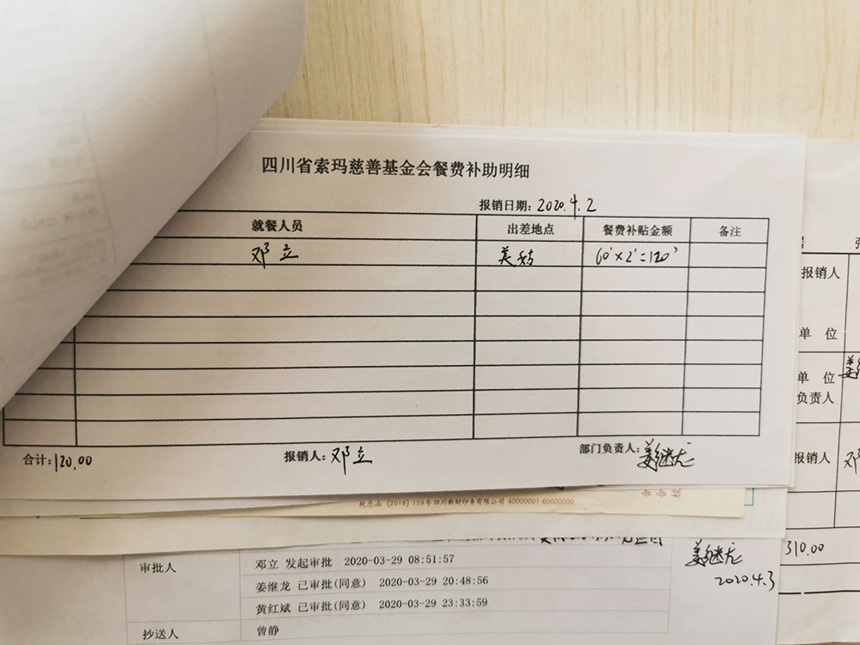 四川省索玛慈善基金会餐费补助明细
报销日期：2020.4.2
就餐人员 出差地点 餐费补贴金额 备注
邓立 美姑 60×2=120
合计：120.00 报销人：邓立 部门负责人：姜继龙
税总函〔2016〕159号四川新财印务有限公司 40000001-60000000
审批人
邓立 发起审批 2020-03-29 08:51:57
姜继龙 已审批(同意) 2020-03-29 20:48:56
黄红斌 已审批(同意) 2020-03-29 23:33:59
抄送人 曾静
姜继龙
2020.4.3
报销人
单 位
单 位
负责人
报销人 邓
310.00